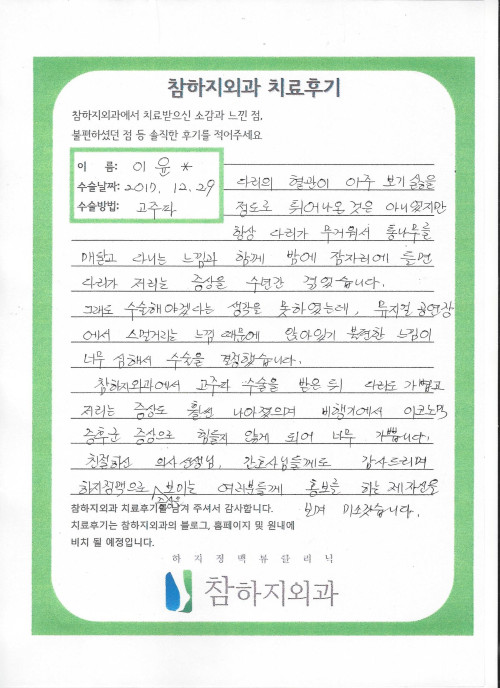 참하지외과 치료후기
참하지외과에서 치료받으신 소감과 느낀 점,
불편하셨던 점 등 솔직한 후기를 적어주세요
이 름: 이 윤 *
수술날짜: 2017. 12. 29
수술방법: 고주파
다리의 혈관이 아주 보기 싫을
정도로 튀어나온 것은 아니였지만
항상 다리가 무거워서 통나무를
매달고 다니는 느낌과 함께 밤에 잠자리에 들면
다리가 저리는 증상을 수년간 겪었습니다.
그래도 수술해야겠다는 생각을 못하였는데, 뮤지컬 공연장
에서 스멀거리는 느낌 때문에 앉아있기 불편한 느낌이
너무 심해서 수술을 결정했습니다.
참하지외과에서 고주파 수술을 받은 뒤 다리도 가볍고
저리는 증상도 훨씬 나아졌으며 비행기에서 이코노믹
증후군 증상으로 힘들지 않게 되어 너무 기쁩니다.
친절하신 의사선생님, 간호사님들께도 감사드리며
하지정맥으로 보이는 여러분들께 홍보를 하는 제자신을
증상을
보며 미소짓습니다.
참하지외과 치료후기를 남겨 주셔서 감사합니다.
치료후기는 참하지외과의 블로그, 홈페이지 및 원내에
비치 될 예정입니다.
하지정맥류클리닉
참하지외과